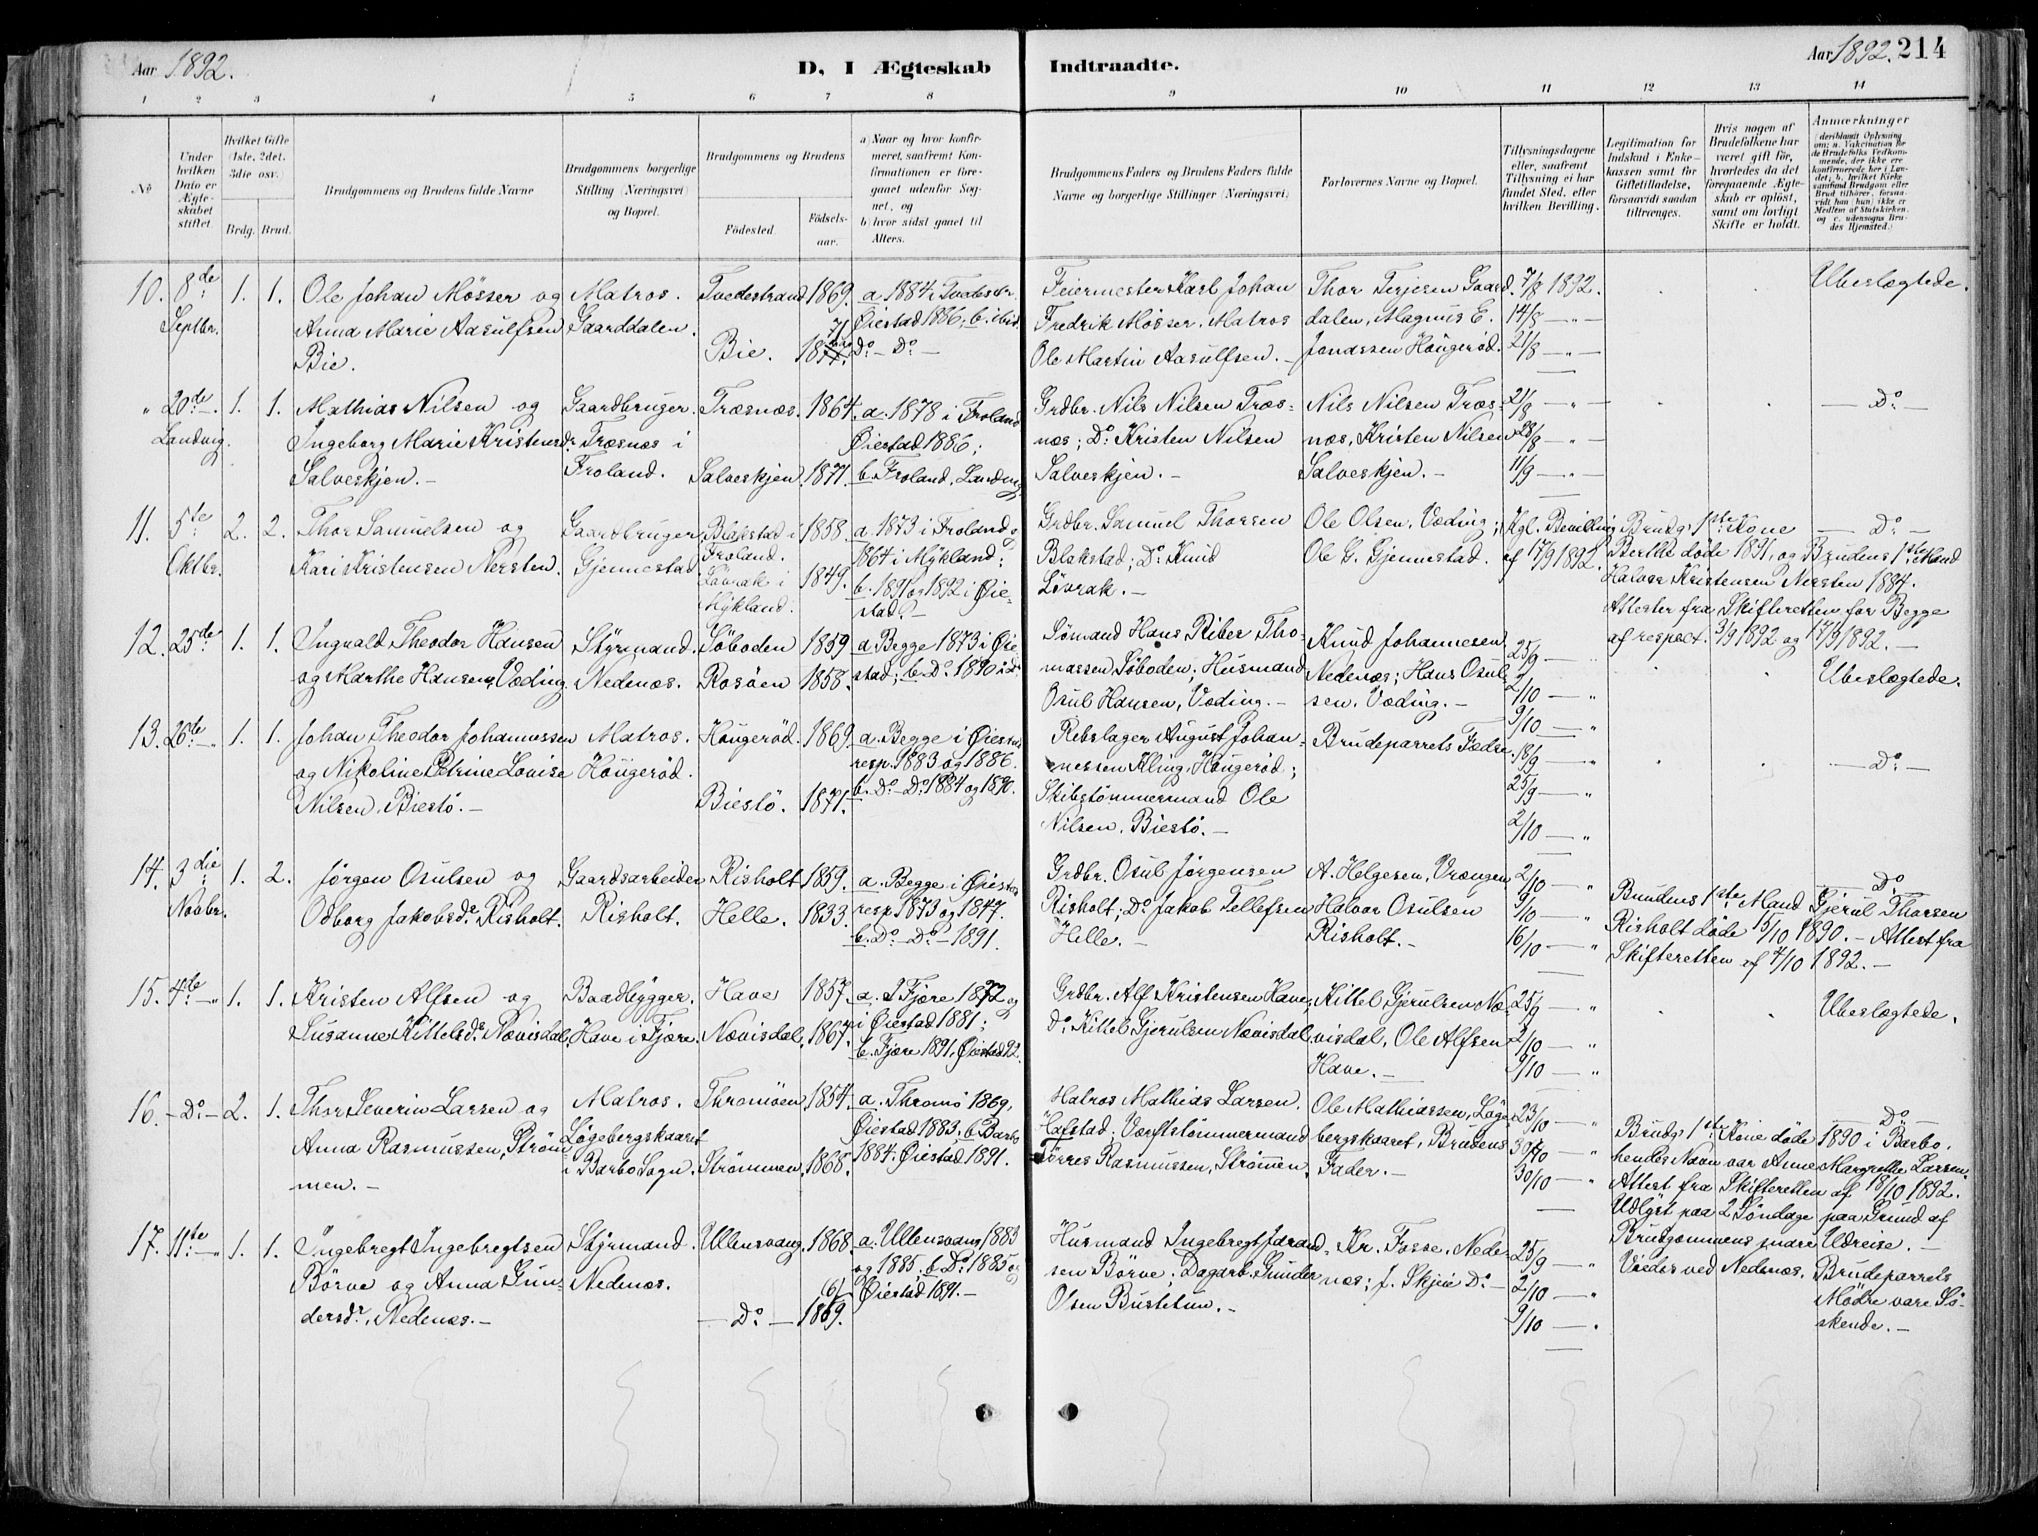 Aar 1892.
D, I Ægteskab Indtraadte.
Aar 1892. 214
1 2 3 4 5 6 7 8 9 10 11 12 13 14
No
Under hvilken Dato er Ægteskabet stiftet.
Hvilket Gifte (1ste, 2det, 3die osv.)
Brdg. Brud.
Brudgommens og Brudens fulde Navne
Brudgommens borgerlige Stilling (Næringsvei) og Bopæl.
Brudgommens og Brudens
Fødested. Fødselsaar.
a) Naar og hvor konfirmeret, saafremt Konfirmationen er foregaaet udenfor Sognet, og
b) hvor sidst gaaet til Alters.
Brudgommens Faders og Brudens Faders fulde Navne og borgerlige Stillinger (Næringsvei)
Forlovernes Navne og Bopæl.
Tillysningsdagene eller, saafremt Tillysning ei har fundet Sted, efter hvilken Bevilling.
Legitimation for Indskud i Enkekassen samt for Giftetilladelse, forsaavidt saadan tiltrænges.
Hvis nogen af Brudefolkene har været gift før, hvorledes da det foregaaende Ægteskab er opløst, samt om lovligt Skifte er holdt.
Anmærkninger
(deriblandt Oplysning om: a. Vakcination for de Brudefolks Vedkommende, der ikke ere konfirmerede her i Landet; b. hvilket Kirkesamfund Brudgom eller Brud tilhører, forsaavidt han (hun) ikke er Medlem af Statskirken, og c. udensogns Brudes Hjemsted.)
10. 8de Septbr. 1. 1.
Ole Johan Møsser og
Anna Marie Aasulfsen
Bie.
Matros.
Gaarddalen.
Tvedestrand 1869.
Bie.
a. 1884 i
Øiestad 1886; b. ibid.
Do – Do –
Feiermester Karl Johan
Fredrik Møsser. Matros
Ole Martin Aasulfsen. –
Thor Terjesen Gaard
dalen, Magnus E.
Jonassen Hougerød.
7/8 1892.
14/8 – " –
21/8 – " –
Ubeslægtede.
" 20de – Landvig. 1. 1.
Mathias Nilsen og
Ingeborg Marie Kristensdr
Salveskjen. –
Gaardbruger.
Træsnæs i
Froland.
Træsnæs. 1864.
Salveskjen. 1871.
a. 1878 i Froland
Øiestad 1886;
b. Froland, Landvig.
Grdbr. Nils Nilsen Træs-
næs; Do Kristen Nilsen
Salveskjen. –
Nils Nilsen Træs-
næs, Kristen Nilsen
Salveskjen. –
21/8 – " –
28/8 – " –
11/9 – " –
– Do –
11. 5te Oktbr. 2. 2.
Thor Samuelsen og
Kari Kristensen Nersten.
Gaardbruger
Gjennestad
Blakstad i 1858.
Froland.
Løvrak i 1849.
Mykland.
a. 1873 i Froland og
1864 i Mykland;
b. 1891 og 1892 i Øie-
stad. –
Grdbr. Samuel Thorsen
Blakstad; Do Knud
Løvrak. –
Ole Olsen, Væding;
Ole G. Gjennestad.
Kgl. Bevilling
af 17/9 1892.
Brudg. 1ste Kone
Berthe døde 1891, og Brudens 1ste Mand
Halvor Kristensen Nersten 1884.
Attester fra Skifteretten for Begge
af respekt. 3/9 1892 og 17/9 1892. –
– Do –
12. 25de 1. 1.
Ingvald Theodor Hansen
og Marthe Hansen, Væding.
Styrmand.
Nedenæs.
Søboden 1859
Rosøen 1858.
a Begge 1873 i Øie-
stad; b. Do 1890 i Do
Sømand Hans Riber Tho-
massen Søboden; Husmand
Osul Hansen, Væding. –
Knud Johannesen
Nedenæs; Hans Osul-
sen, Væding. –
25/9 –
2/10 – "
9/10 – "
Ubeslægtede.
13. 26de – " 1. 1.
Johan Theodor Johannessen
og Nikoline Petrine Lovise
Nilsen, Biestø. –
Matros.
Hougerød.
Hougerød. 1869
Biestø. 1871.
a. Begge i Øiestad
resp. 1883 og 1886.
b. Do – Do 1884 og 1890.
Rebslager August Johan-
nessen Kling, Hougerød;
Skibstømmermand Ole
Nilsen, Biestø. –
Brudeparrets Fædre.
18/9 – "
25/9 – "
2/10 – "
– Do –
14. 3die Novbr. 1. 2.
Jørgen Osulsen og
Odborg Jakobsdr Risholt.
Gaardsarbeider
Risholt.
Risholt 1859.
Helle. 1833.
a. Begge i Øiestad
resp 1873 og 1847.
b. Do – Do – 1891.
Grdbr. Osul Jørgensen
Risholt; Do Jakob Tellefsen
Helle. –
A. Helgesen, Vrængen
Halvor Osulsen
Risholt. –
2/10 – "
9/10 – "
16/10 – "
– Do
Brudens 1ste Mand Gjerul Thorsen
Risholt døde 15/10 1890. – Attest fra
Skifteretten af 4/10 1892. –
15. 4de – " 1. 1.
Kristen Alfsen og
Susanne Kittelsdr Nævisdal.
Baadbygger.
Have i Fjære.
Have 1857.
Nævisdal. 1867.
a. I Fjære 1872 og
i Øiestad 1881;
b. Fjære 1891, Øiestad 92.
Grdbr. Alf Kristensen Have,
Do Kittel Gjerulsen Nævisdal.
Kittel Gjerulsen Næ-
visdal, Ole Alfsen
Have. –
25/9 – "
2/10 – "
9/10 – "
Ubeslægtede.
16. – Do – 2. 1.
Thor Severin Larsen og
Anna Rasmussen, Strøm-
men. –
Matros.
Løgebergskaaret
i Barbo Sogn.
Thromøen 1854.
Strømmen. 1868.
a. Thromø 1869,
Øiestad 1883; b. Barbo
1884. Øiestad 1891.
Matros Mathias Larsen,
Hafstad; Værftstømmermand
Tørres Rasmussen, Strømmen.
Ole Mathiassen, Løge-
bergskaaret, Brudens
Fader. –
23/10 – "
30/10 – "
30/10 – "
– Do –
Brudg. 1ste Kone døde 1890 i Barbo.
hendes Navn var Anne Margrethe Larsen.
Attest fra Skifteretten af 18/10 1892.
Udlyst paa 2 Søndage paa Grund af
Brudgommens snare Udreise. –
17. 11te – " 1. 1.
Ingebregt Ingebregtsen
Børve og Anna Gun-
dersdr, Nedenæs. –
Styrmand.
Nedenæs.
Ullensvang. 1868.
– Do – 1869.
a. Ullensvang 1883
og 1885. b. Do 1885 og
Øiestad 1891. –
Husmand Ingebregt Jorand-
sen Børve; Dagarb. Gunder
Olsen Bustetun. –
Kr. Fosse, Nede-
næs; J. Skjeie Do –
25/9 – "
2/10 – "
9/10 – "
Viedes ved Nedenæs. Brudeparrets
Mødre vare Sø-
skende. –